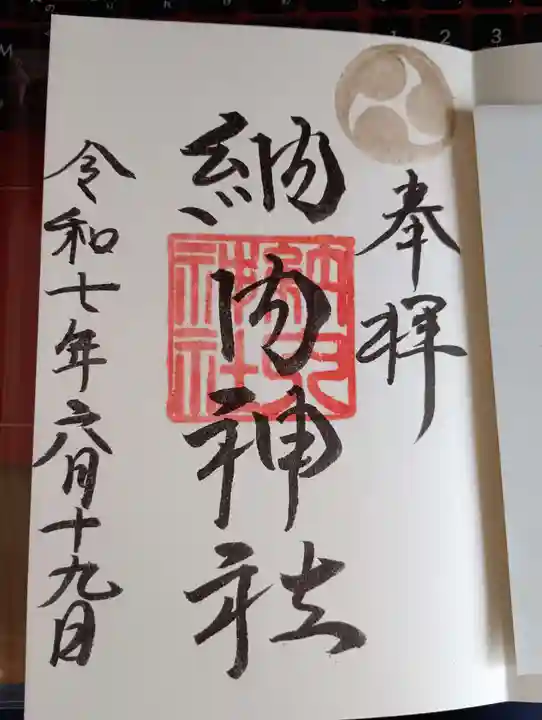 奉拝
納内神社
令和七年六月十九日